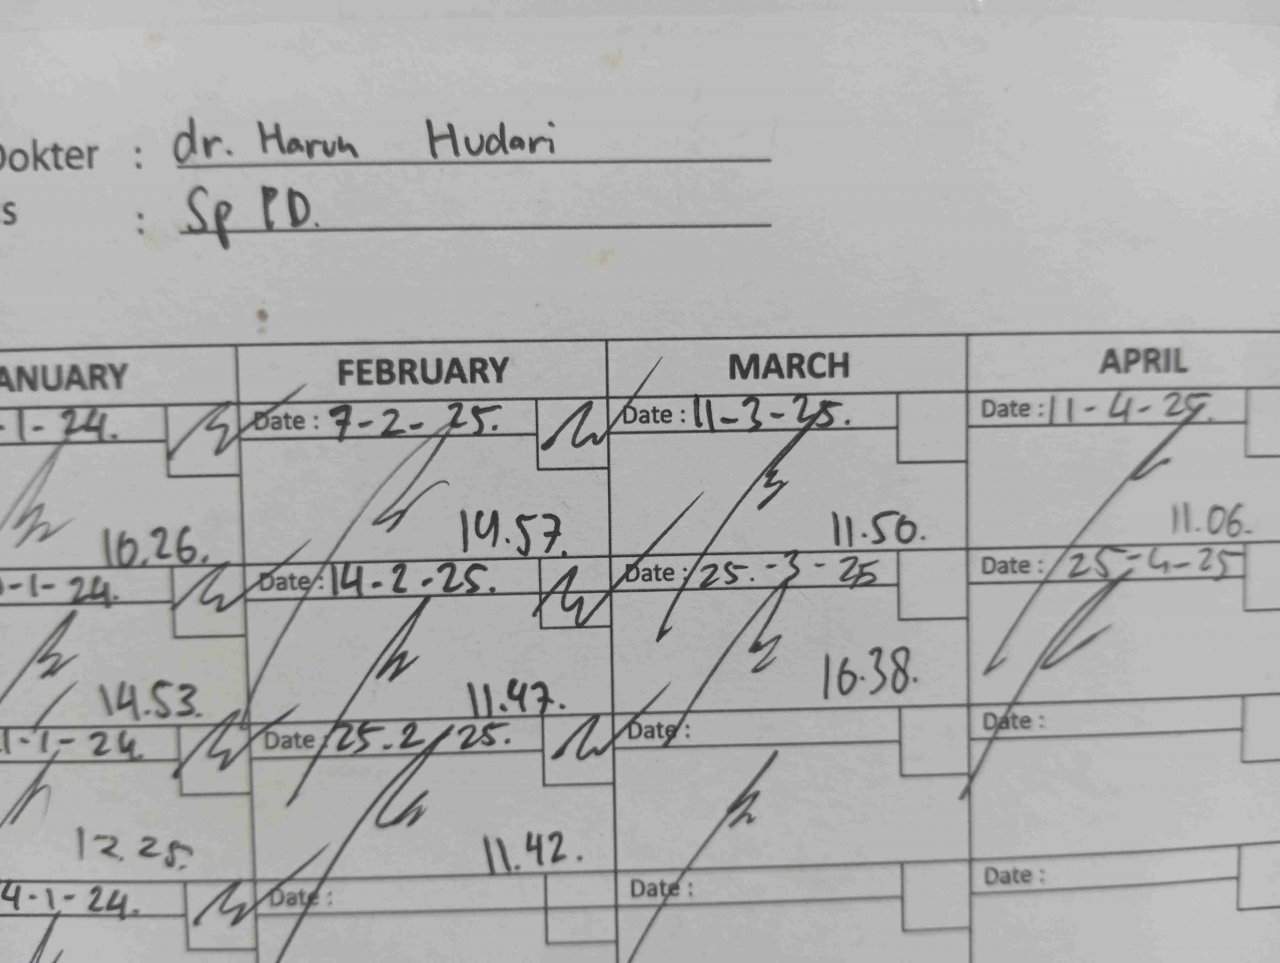 Dokter : dr. Harun Hudari
s : Sp PD.
ANUARY FEBRUARY MARCH APRIL
-1-24. Date : 7-2-25. Date : 11-3-25. Date : 11-4-25.
10.26. 14.57. 11.50. 11.06.
-1-24. Date : 14-2-25. Date : 25.-3-25 Date : 25-4-25
14.53. 11.47. 16.38.
1-1-24. Date : 25.2/25. Date : Date :
12.25. 11.42.
4-1-24. Date : Date : Date :